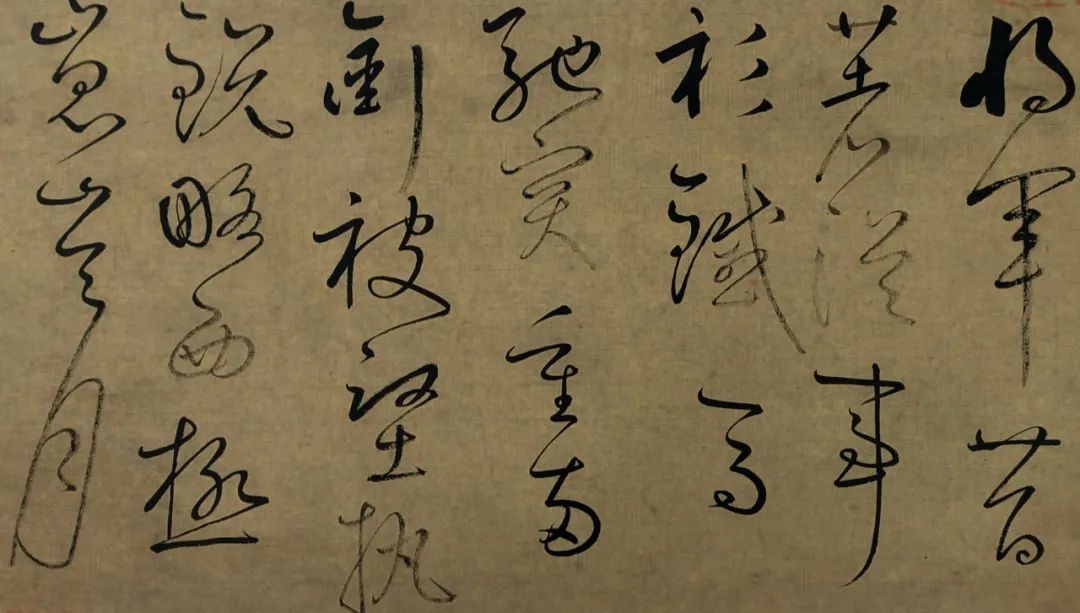 將軍昔
著從事
衫鐵馬
馳突重兩
銜被堅執
銳略西極
崑崙月